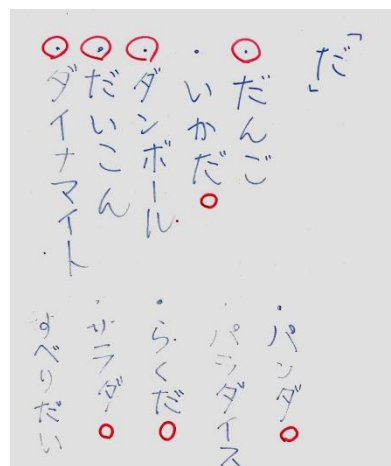 「だ」
・だんご
・いかだ
・ダンボール
・だいこん
・ダイナマイト
・パンダ
・パラダイス
・らくだ
・サラダ
すべりだい